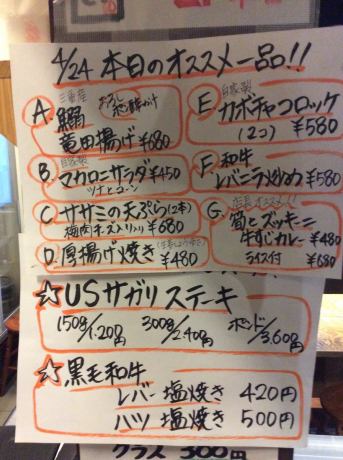 4/24 本日のオススメ一品!!
A. 三重産 鰯 おろしポン酢かけ
竜田揚げ ¥680
B. 自家製 マカロニサラダ ¥450
ツナとコーン
C. ササミの天ぷら(2本)
梅肉チーズ入り ¥680
D. 厚揚げ焼き ¥480
E. 自家製 カボチャコロッケ
(2コ) ¥580
F. 和牛
レバニラ炒め ¥580
G. 店長オススメ!!
筍とズッキーニ
牛すじカレー ¥480
ライス付 ¥680
☆USサガリステーキ
150g/1,200円 300g/2,400円 ポンド/3,600円
☆黒毛和牛
レバー塩焼き 420円
ハツ塩焼き 500円
グラス 300円